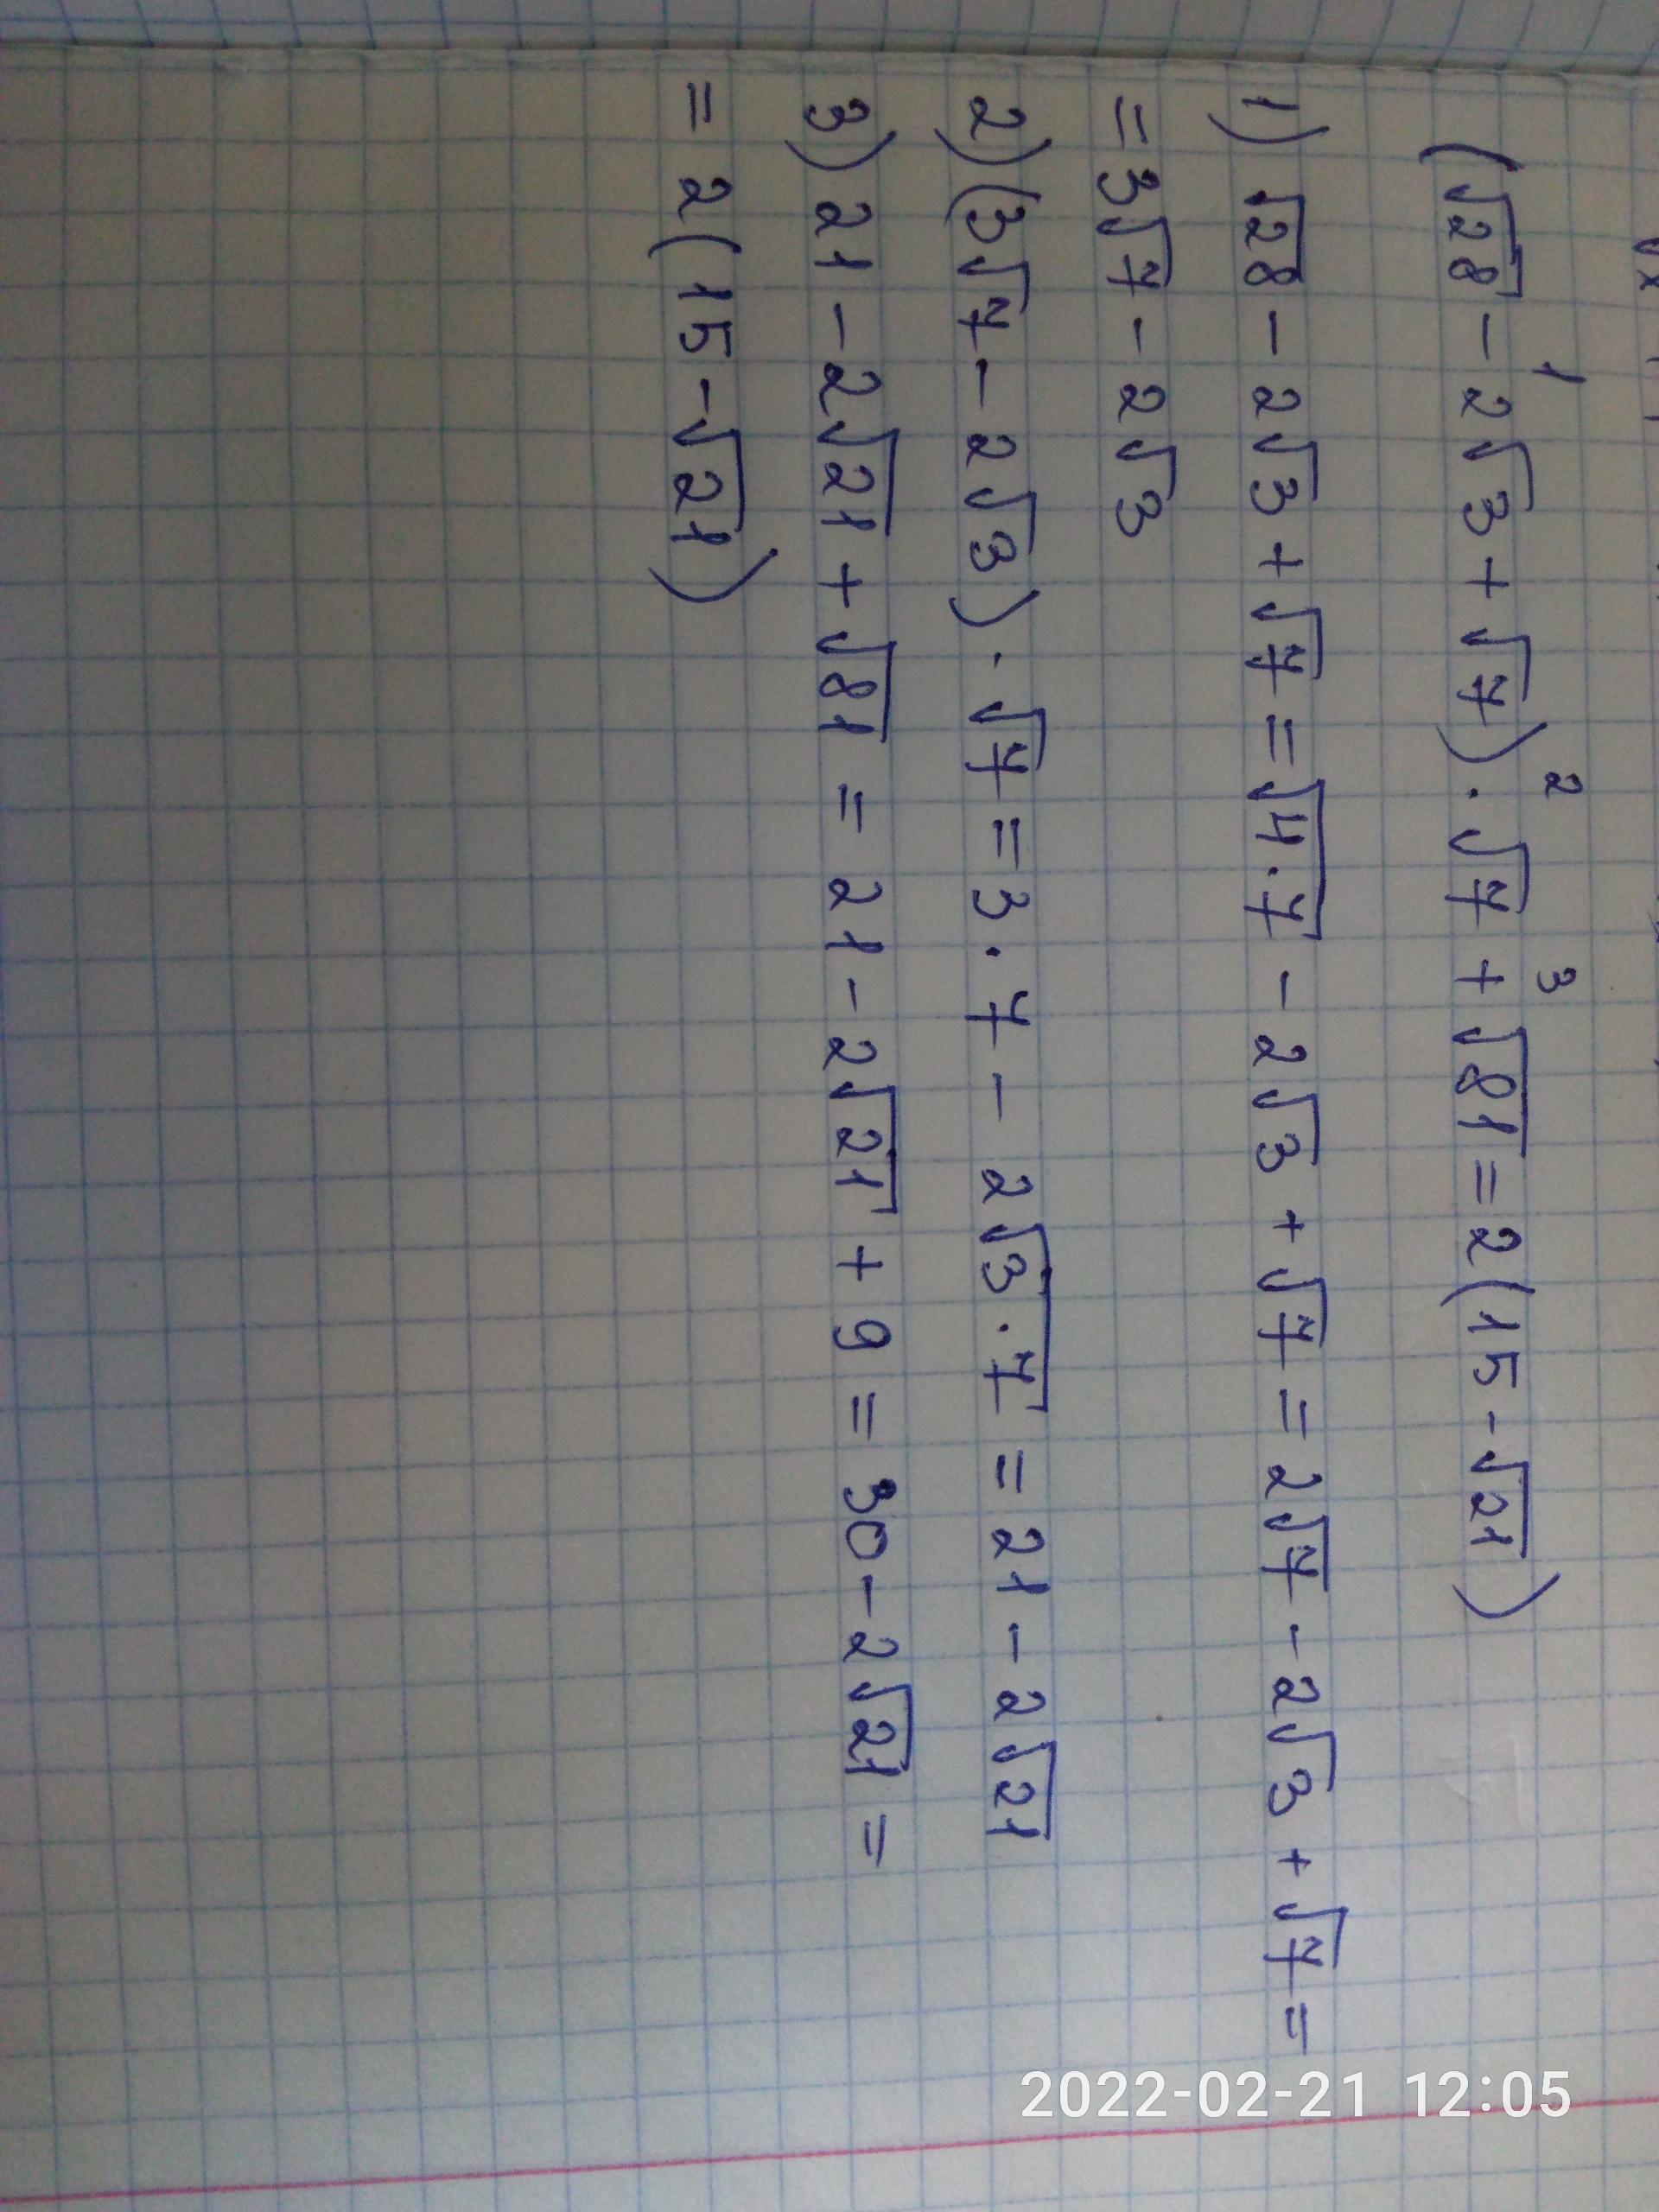 (√28 - 2√3 + √7) · √7 + √81 = 2(15 - √21)
1 2 3
1) √28 - 2√3 + √7 = √4·7 - 2√3 + √7 = 2√7 - 2√3 + √7 =
= 3√7 - 2√3
2) (3√7 - 2√3) · √7 = 3·7 - 2√3·7 = 21 - 2√21
3) 21 - 2√21 + √81 = 21 - 2√21 + 9 = 30 - 2√21 =
= 2(15 - √21)
2022-02-21 12:05